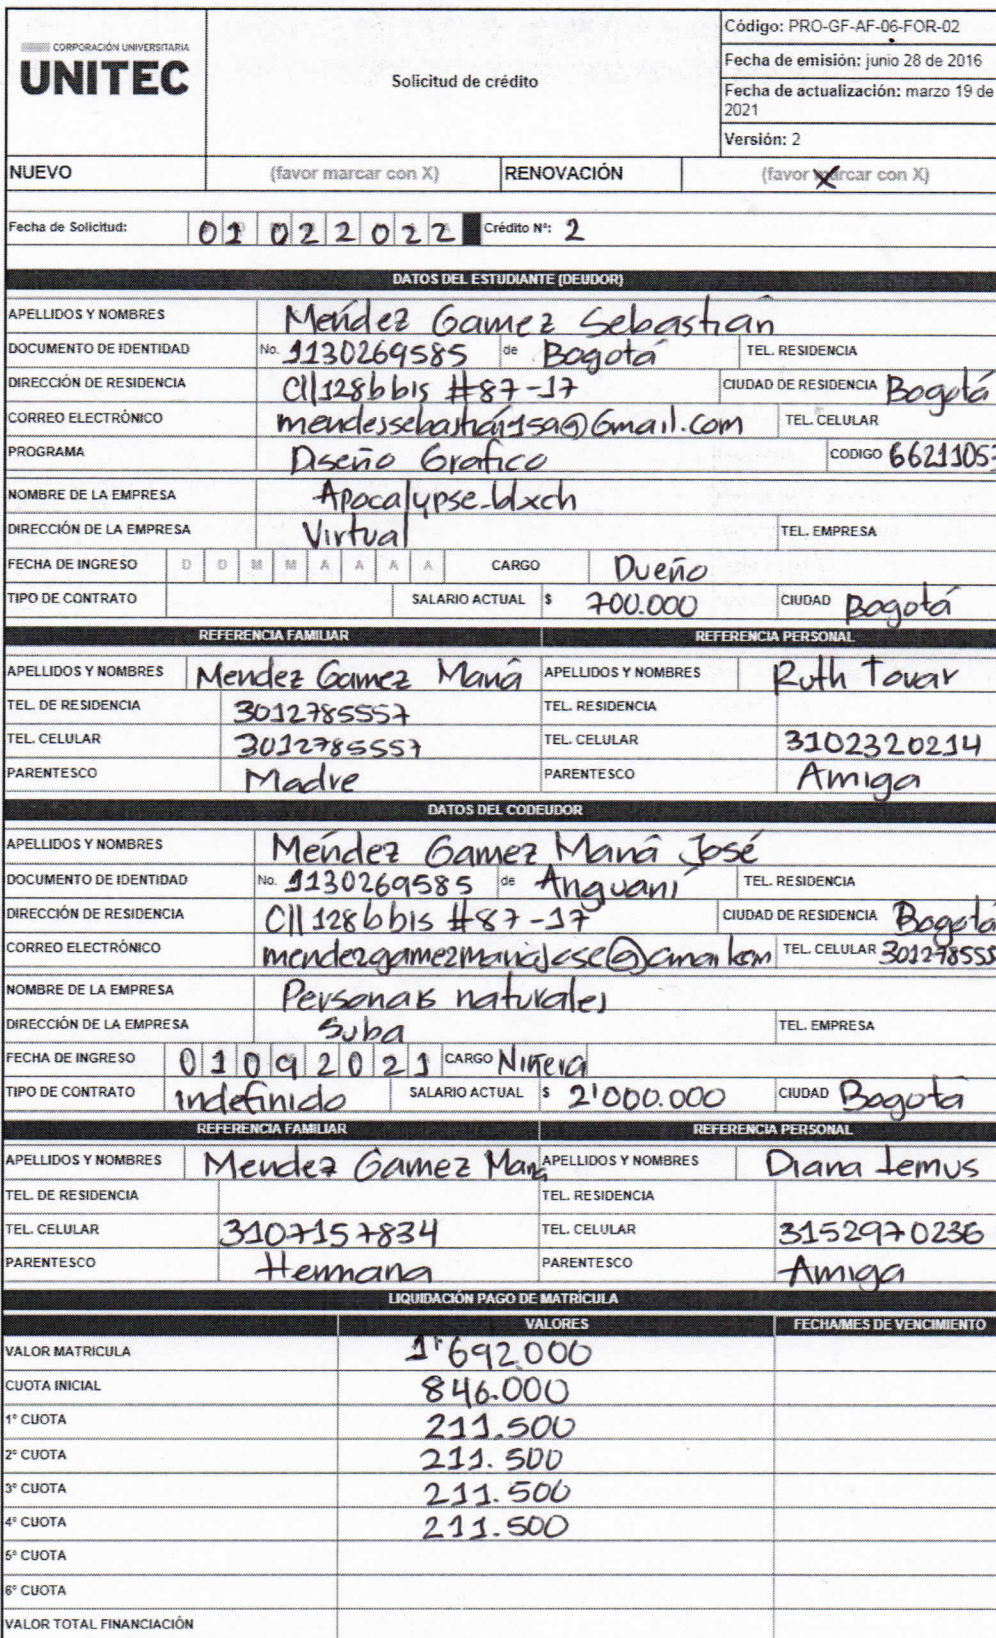 CORPORACIÓN UNIVERSITARIA
UNITEC
Solicitud de crédito
Código: PRO-GF-AF-06-FOR-02
Fecha de emisión: junio 28 de 2016
Fecha de actualización: marzo 19 de 2021
Versión: 2
NUEVO (favor marcar con X) RENOVACIÓN (favor marcar con X) X
Fecha de Solicitud: 01 02 2022 Crédito N°: 2
DATOS DEL ESTUDIANTE (DEUDOR)
APELLIDOS Y NOMBRES Méndez Gamez Sebastián
DOCUMENTO DE IDENTIDAD No. 1130269585 de Bogotá TEL. RESIDENCIA
DIRECCIÓN DE RESIDENCIA Cll 128b bis #87-17 CIUDAD DE RESIDENCIA Bogotá
CORREO ELECTRÓNICO mendessebastián1sa@Gmail.com TEL. CELULAR
PROGRAMA Diseño Grafico CODIGO 6621105
NOMBRE DE LA EMPRESA Apocalypse_blxch
DIRECCIÓN DE LA EMPRESA Virtual TEL. EMPRESA
FECHA DE INGRESO D D M M A A A A CARGO Dueño
TIPO DE CONTRATO SALARIO ACTUAL $ 700.000 CIUDAD Bogotá
REFERENCIA FAMILIAR REFERENCIA PERSONAL
APELLIDOS Y NOMBRES Mendez Gamez María APELLIDOS Y NOMBRES Ruth Tovar
TEL. DE RESIDENCIA 3012785557 TEL. RESIDENCIA
TEL. CELULAR 3012785557 TEL. CELULAR 3102320214
PARENTESCO Madre PARENTESCO Amiga
DATOS DEL CODEUDOR
APELLIDOS Y NOMBRES Méndez Gamez María José
DOCUMENTO DE IDENTIDAD No. 1130269585 de Anguaní TEL. RESIDENCIA
DIRECCIÓN DE RESIDENCIA Cll 128b bis #87-17 CIUDAD DE RESIDENCIA Bogotá
CORREO ELECTRÓNICO TEL. CELULAR 301278555
NOMBRE DE LA EMPRESA Personas naturales
DIRECCIÓN DE LA EMPRESA Suba TEL. EMPRESA
FECHA DE INGRESO 01092021 CARGO Niñera
TIPO DE CONTRATO indefinido SALARIO ACTUAL $ 2'000.000 CIUDAD Bogota
REFERENCIA FAMILIAR REFERENCIA PERSONAL
APELLIDOS Y NOMBRES Mendez Gamez María APELLIDOS Y NOMBRES Diana Lemus
TEL. DE RESIDENCIA TEL. RESIDENCIA
TEL. CELULAR 3107157834 TEL. CELULAR 3152970236
PARENTESCO Hermana PARENTESCO Amiga
LIQUIDACIÓN PAGO DE MATRÍCULA
VALORES FECHA/MES DE VENCIMIENTO
VALOR MATRICULA 1'692.000
CUOTA INICIAL 846.000
1ª CUOTA 211.500
2ª CUOTA 211.500
3ª CUOTA 211.500
4ª CUOTA 211.500
5ª CUOTA
6ª CUOTA
VALOR TOTAL FINANCIACIÓN